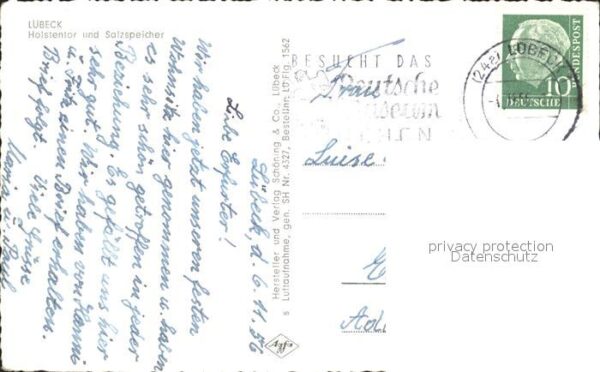 LÜBECK
Holstentor und Salzspeicher
Lübeck, d. 6.11.56
Liebe Erfurter!
Wir haben jetzt unseren festen
Wohnsitz hier genommen u. haben
es sehr schön getroffen in jeder
Beziehung. Es gefällt uns hier
sehr gut. Wir haben von Hanni
u. Fritz einen Brief erhalten.
Brief folgt. Viele Grüsse
Hersteller und Verlag Schöning & Co., Lübeck
s Luftaufnahme, gen. SH Nr. 4327, Bestellnr. Lü Flg. 1562
Agfa
BESUCHT DAS
Deutsche
Museum
(24a) LÜBECK
10
DEUTSCHE
BUNDESPOST
Frau
Luise
privacy protection
Datenschutz